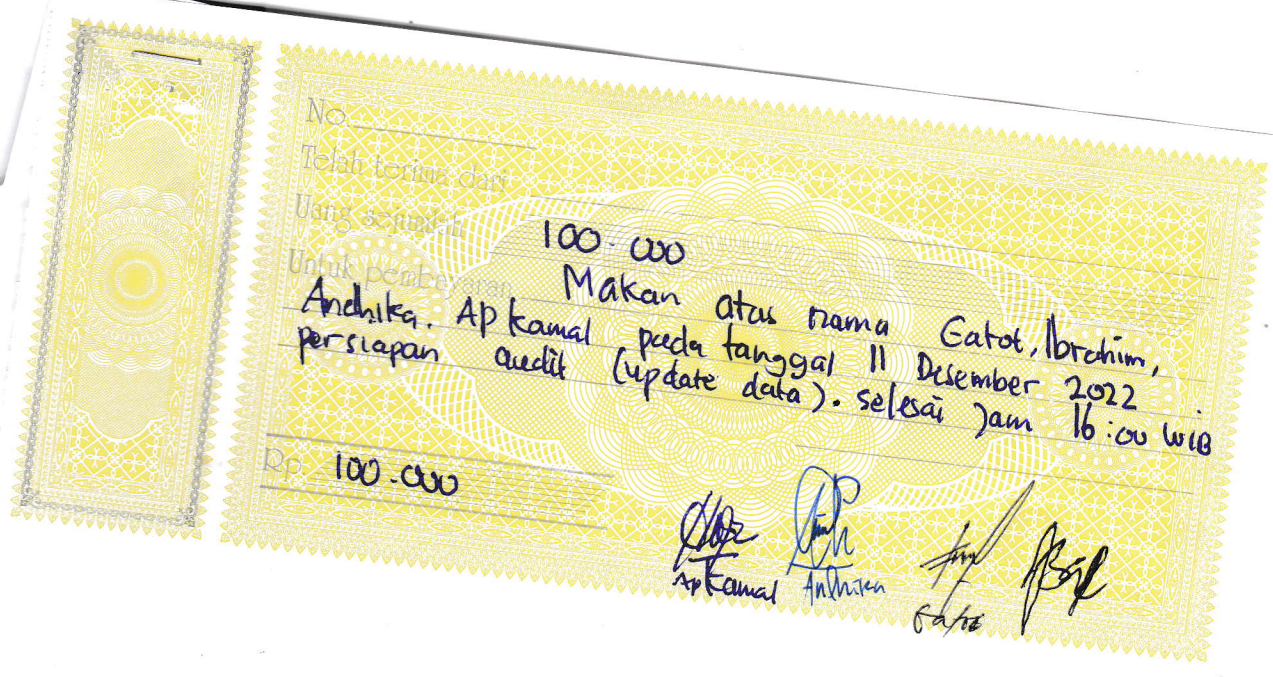 No.
Telah terima dari
Uang sejumlah 100.000
Untuk pembayaran Makan atas nama Gatot, Ibrahim,
Andhika. Ap kamal pada tanggal 11 Desember 2022.
persiapan audit (update data). selesai jam 16:00 WIB
Rp. 100.000
Ap kamal Andhika Gatot